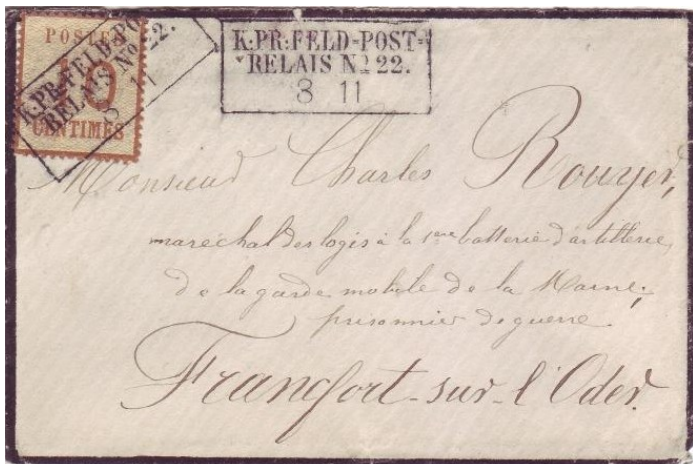 POSTES
10
CENTIMES
K:PR:FELD-PO
RELAIS No 22.
8 11
K:PR:FELD-POST=
RELAIS No 22.
8 11
Monsieur Charles Rouyer,
maréchal des logis à la 1ère batterie d'artillerie,
de la garde mobile de la Marne,
prisonnier de guerre.
Francfort-sur-l'Oder.